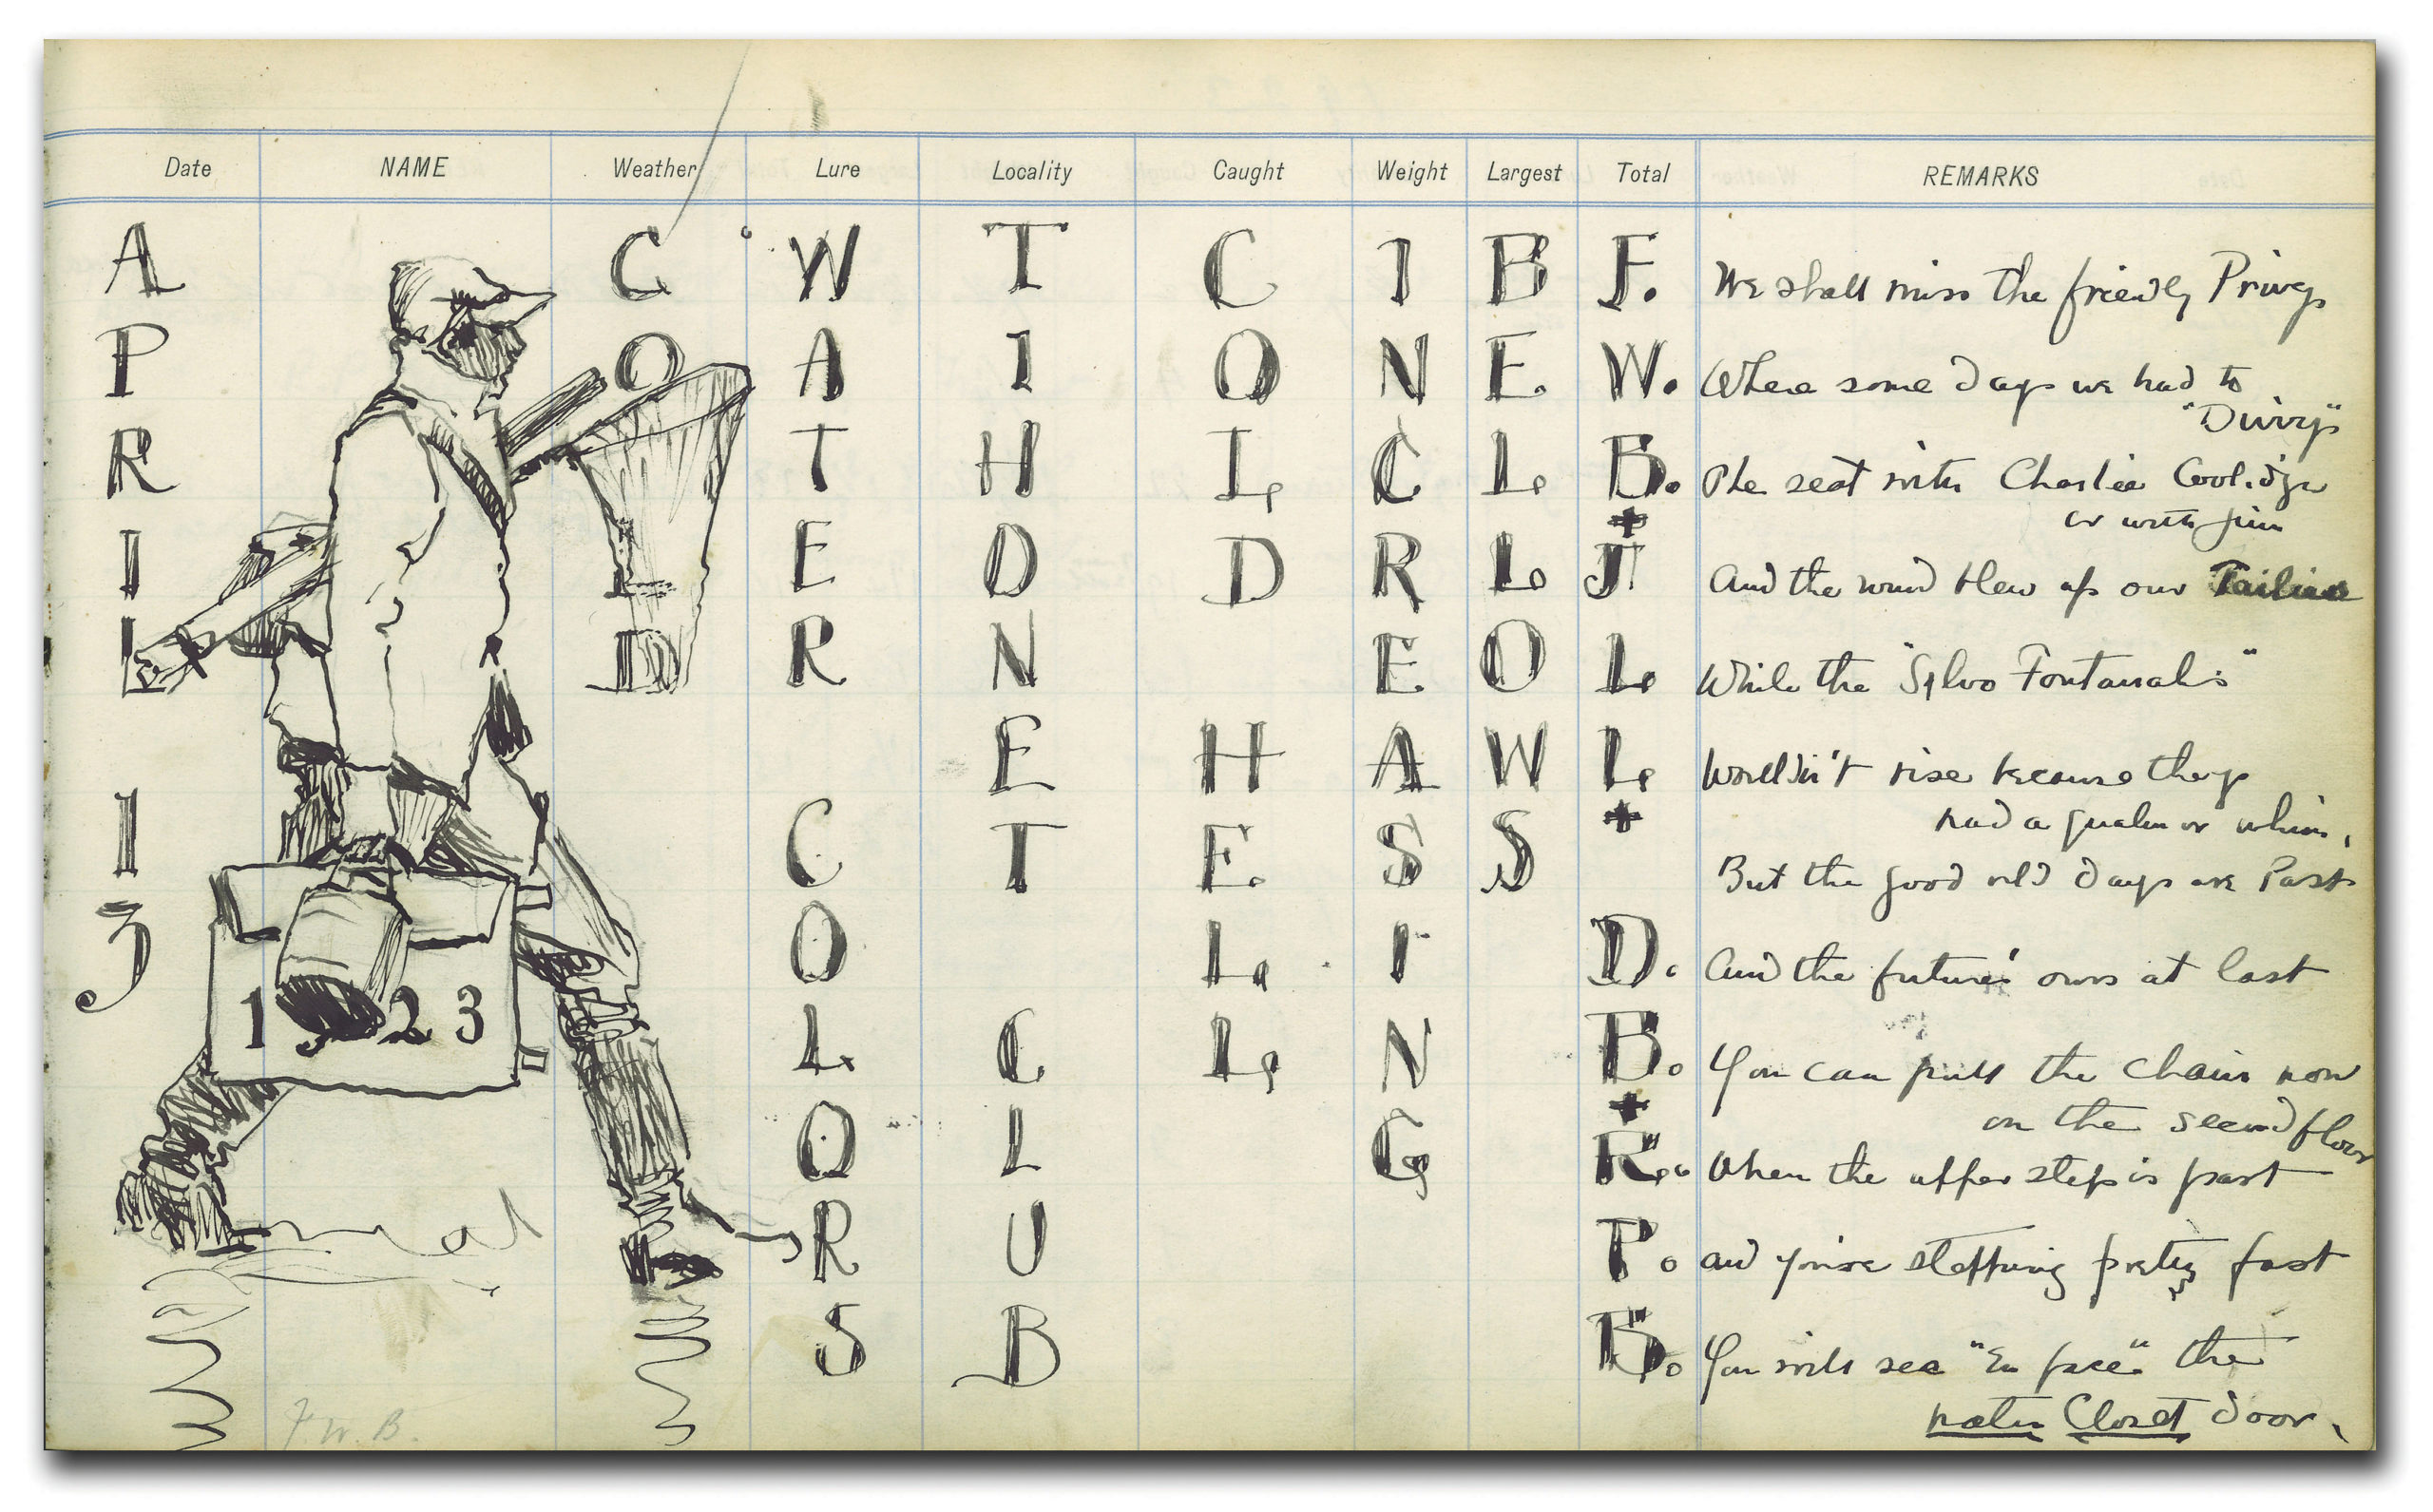 Date NAME Weather Lure Locality Caught Weight Largest Total REMARKS
APRIL 13
1923
COLD
WATER COLORS
TIHONET CLUB
COLD HELL
INCREASING
BELLOWS
F. W. B. + J L. L. + D. B. + R. P. B.
We shall miss the friendly Privy
Where some days we had to
"Divvy"
The seat with Charlie Coolidge
or with Jim
And the wind blew up our
While the "Sylvo Fontanalis"
Wouldn't rise because they
had a qualm or whim,
But the good old days are Past
And the future's ours at last
You can pull the chain now
on the second floor
When the upper step is past
and you're stepping pretty fast
You will see "En face" the
water Closet door.
F. W. B.